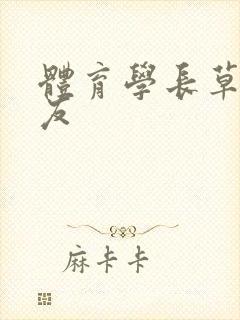 體育學長草
友
麻卡卡